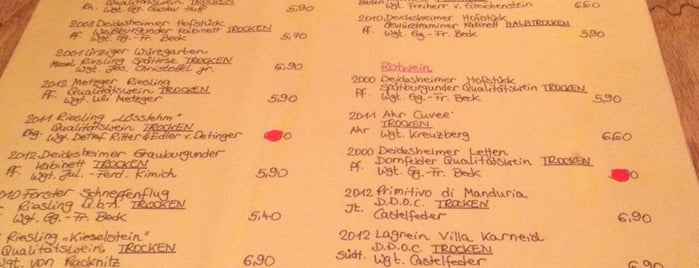 Qualitätswein TROCKEN
Rh. Wgt. Gg. Gustav Huff 5,90
2008 Deidesheimer Hofstück
Weißburgunder Kabinett TROCKEN
Pf. Wgt. Gg.-Fr. Beck 5,70
2001 Ürziger Würzgarten
Mosel Riesling Spätlese TROCKEN
Wgt. Jos. Christoffel jr. 6,90
2012 Metzger Riesling
Pf. Qualitätswein TROCKEN
Wgt. Uli Metzger 5,90
2011 Riesling "Lösslehm"
Qualitätswein TROCKEN
Rhg. Wgt. Detlef Ritter & Edler v. Oetinger 0
2012 Deidesheimer Grauburgunder
Kabinett TROCKEN
Pf. Wgt. Jul.-Ferd. Kimich 5,90
2010 Forster Schnepfenflug
Riesling Q.b.A. TROCKEN
Wgt. Gg.-Fr. Beck 5,40
Riesling "Kieselstein"
Qualitätswein TROCKEN
Wgt. von Racknitz 6,90
Baden Wgt. Freiherr v. Gleichenstein 6,60
2010 Deidesheimer Hofstück
Gewürztraminer Kabinett HALBTROCKEN
Pf. Wgt. Gg.-Fr. Beck
Rotwein
2000 Deidesheimer Hofstück
Spätburgunder Qualitätswein TROCKEN
Pf. Wgt. Gg.-Fr. Beck 5,90
2011 Ahr Cuveé
TROCKEN
Ahr Wgt. Kreuzberg 6,60
2000 Deidesheimer Letten
Dornfelder Qualitätswein TROCKEN
Pf. Wgt. Gg.-Fr. Beck
2012 Primitivo di Manduria
D.D.O.C. TROCKEN
It. Castelfeder 6,90
2012 Lagrein Villa Karneid
D.O.C. TROCKEN
Südt. Wgt. Castelfeder 6,90